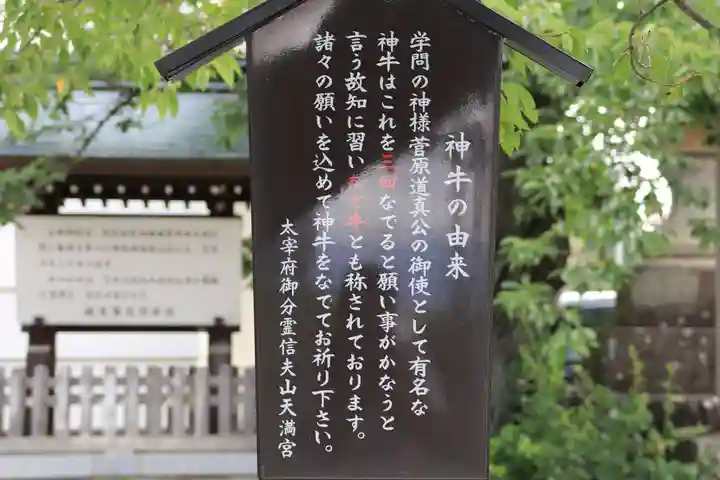 神牛の由来
学問の神様菅原道真公の御使として有名な
神牛はこれを三回なでると願い事がかなうと
言う故知に習いなで牛とも称されております。
諸々の願いを込めて神牛をなでてお祈り下さい。
太宰府御分霊信夫山天満宮